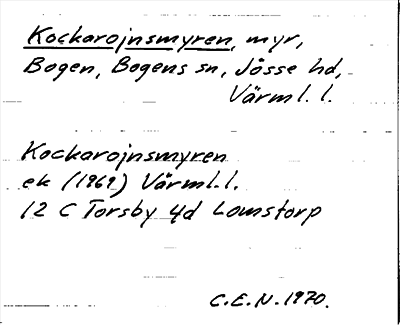 Kockarojnsmyren, myr,
Bogen, Bogens sn, Jösse hd,
Värml. l.
Kockarojnsmyren
ek (1969) Värml. l.
12 C Torsby 4d Lomstorp
C.E.N. 1970.